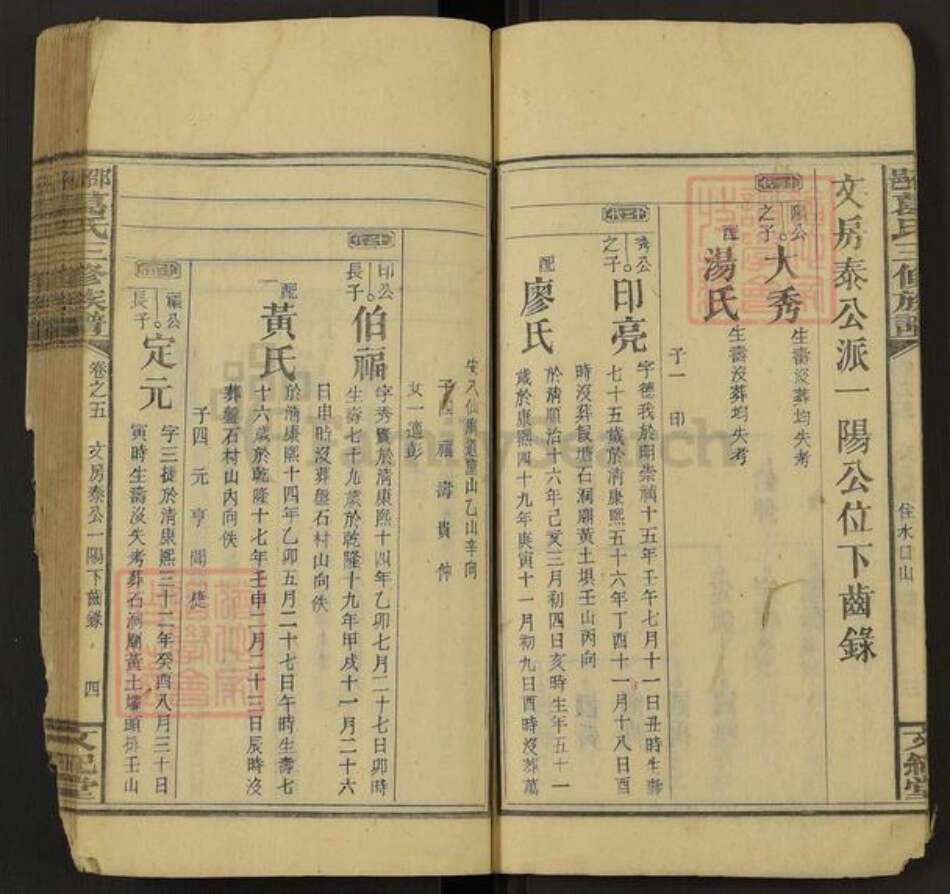 文房泰公派一陽公位下齒錄
住水口山
陽公之子
大秀
生壽沒葬均失考
配
湯氏
生壽沒葬均失考
子一 印
十二代
秀公之子
印亮
字德我於明崇禎十五年壬午七月十一日丑時生壽
七十五歲於清康熙五十六年丁酉十一月十八日酉
時沒葬 塘石洞廟黃土垻壬山丙向
配
廖氏
於清順治十六年己亥三月初四日亥時生年五十一
歲於康熙四十九年庚寅十一月初九日酉時沒葬萬
安八仙廟道童山乙山辛向
子四 福 壽 貴 仲
女一適彭
十三代
印公長子
伯福
字秀賓於清康熙十四年乙卯七月二十七日卯時
生壽七十九歲於乾隆十九年甲戌十一月二十六
日申時沒葬盤石村山向佚
配
黃氏
於清康熙十四年乙卯五月二十七日午時生壽七
十六歲於乾隆十七年壬申一月二十三日辰時沒
葬盤石村山內向佚
子四 元 亨 開 捷
十四代
福公長子
定元
字三捷於清康熙三十二年癸酉八月三十日
寅時生壽沒失考葬石洞廟黃土壩頭排壬山
邵葛氏三修族譜
卷之五
文房泰公一陽下齒錄
四